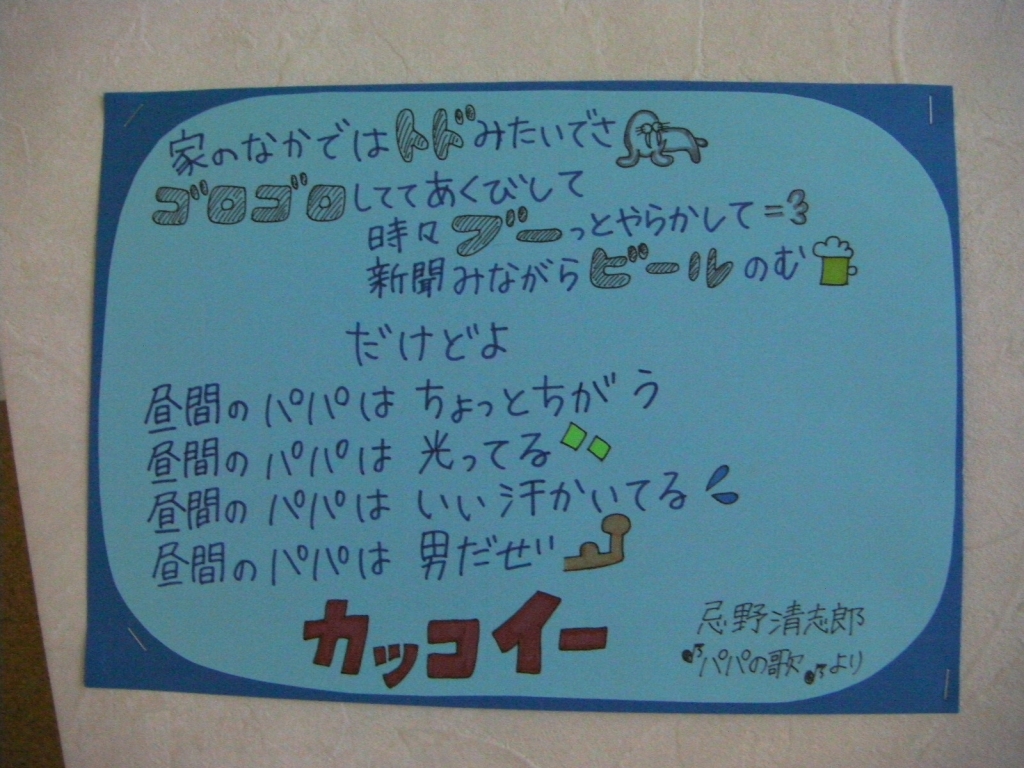 家のなかではトドみたいでさ
ゴロゴロしててあくびして
時々ブーっとやらかして
新聞みながらビールのむ
だけどよ
昼間のパパはちょっとちがう
昼間のパパは光ってる
昼間のパパはいい汗かいてる
昼間のパパは男だぜい
カッコイー
忌野清志郎
♪パパの歌♪より